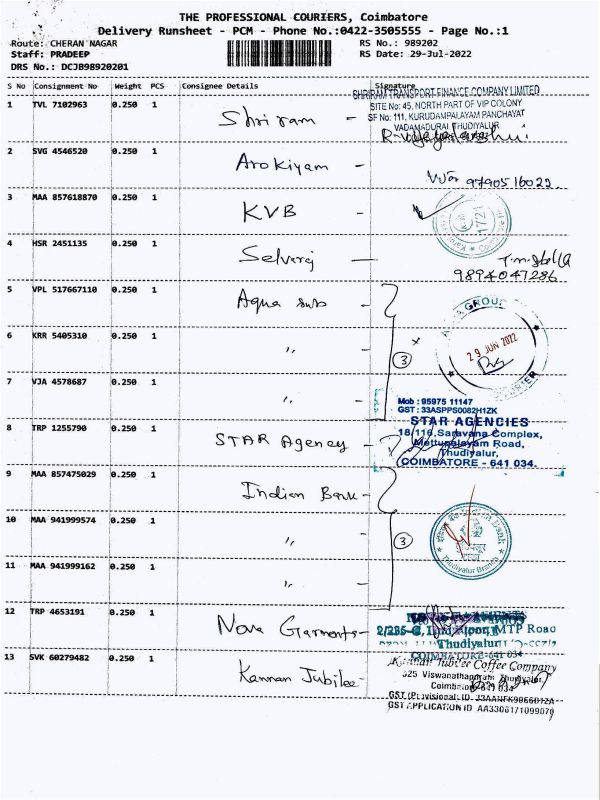 THE PROFESSIONAL COURIERS, Coimbatore
Delivery Runsheet - PCM - Phone No.:0422-3505555 - Page No.:1
Route: CHERAN NAGAR
RS No.: 989202
Staff: PRADEEP
RS Date: 29-Jul-2022
DRS No.: DCJB98920201
S No Consignment No Weight PCS Consignee Details Signature
SHRIRAM TRANSPORT FINANCE COMPANY LIMITED
1 TVL 7102963 0.250 1 Shriram -
SITE No: 45, NORTH PART OF VIP COLONY
SF No: 111, KURUDAMPALAYAM PANCHAYAT
VADAMADURAI THUDIYALUR
2 SVG 4546520 0.250 1 Arokiyam -
9790516022.
3 MAA 857618870 0.250 1 KVB -
1721
4 HSR 2451135 0.250 1 Selvaraj —
T.m. Stella
9894047286
5 VPL 517667110 0.250 1 Aqua sub -
GROUP
6 KRR 5405310 0.250 1 " -
3
29 JUN 2022
7 VJA 4578687 0.250 1 " -
Mob : 95975 11147
GST : 33ASPPS0082H1ZK
8 TRP 1255790 0.250 1 STAR Agency -
STAR AGENCIES
18/116, Saravana Complex,
Mettupalayam Road,
Thudiyalur,
COIMBATORE - 641 034.
9 MAA 857475029 0.250 1 Indian Bank -
10 MAA 941999574 0.250 1 " -
3
Indian Bank
Thudiyalur Branch
11 MAA 941999162 0.250 1 " -
12 TRP 4653191 0.250 1 Nova Garments -
MTP Road
Thudiyalur
COIMBATORE-641 034
13 SVK 60279482 0.250 1 Kannan Jubilee -
Kannan Jubilee Coffee Company
325 Viswanathapuram Thudiyalur,
Coimbatore-641 034
GST (Provisional) ID-
GST APPLICATION ID